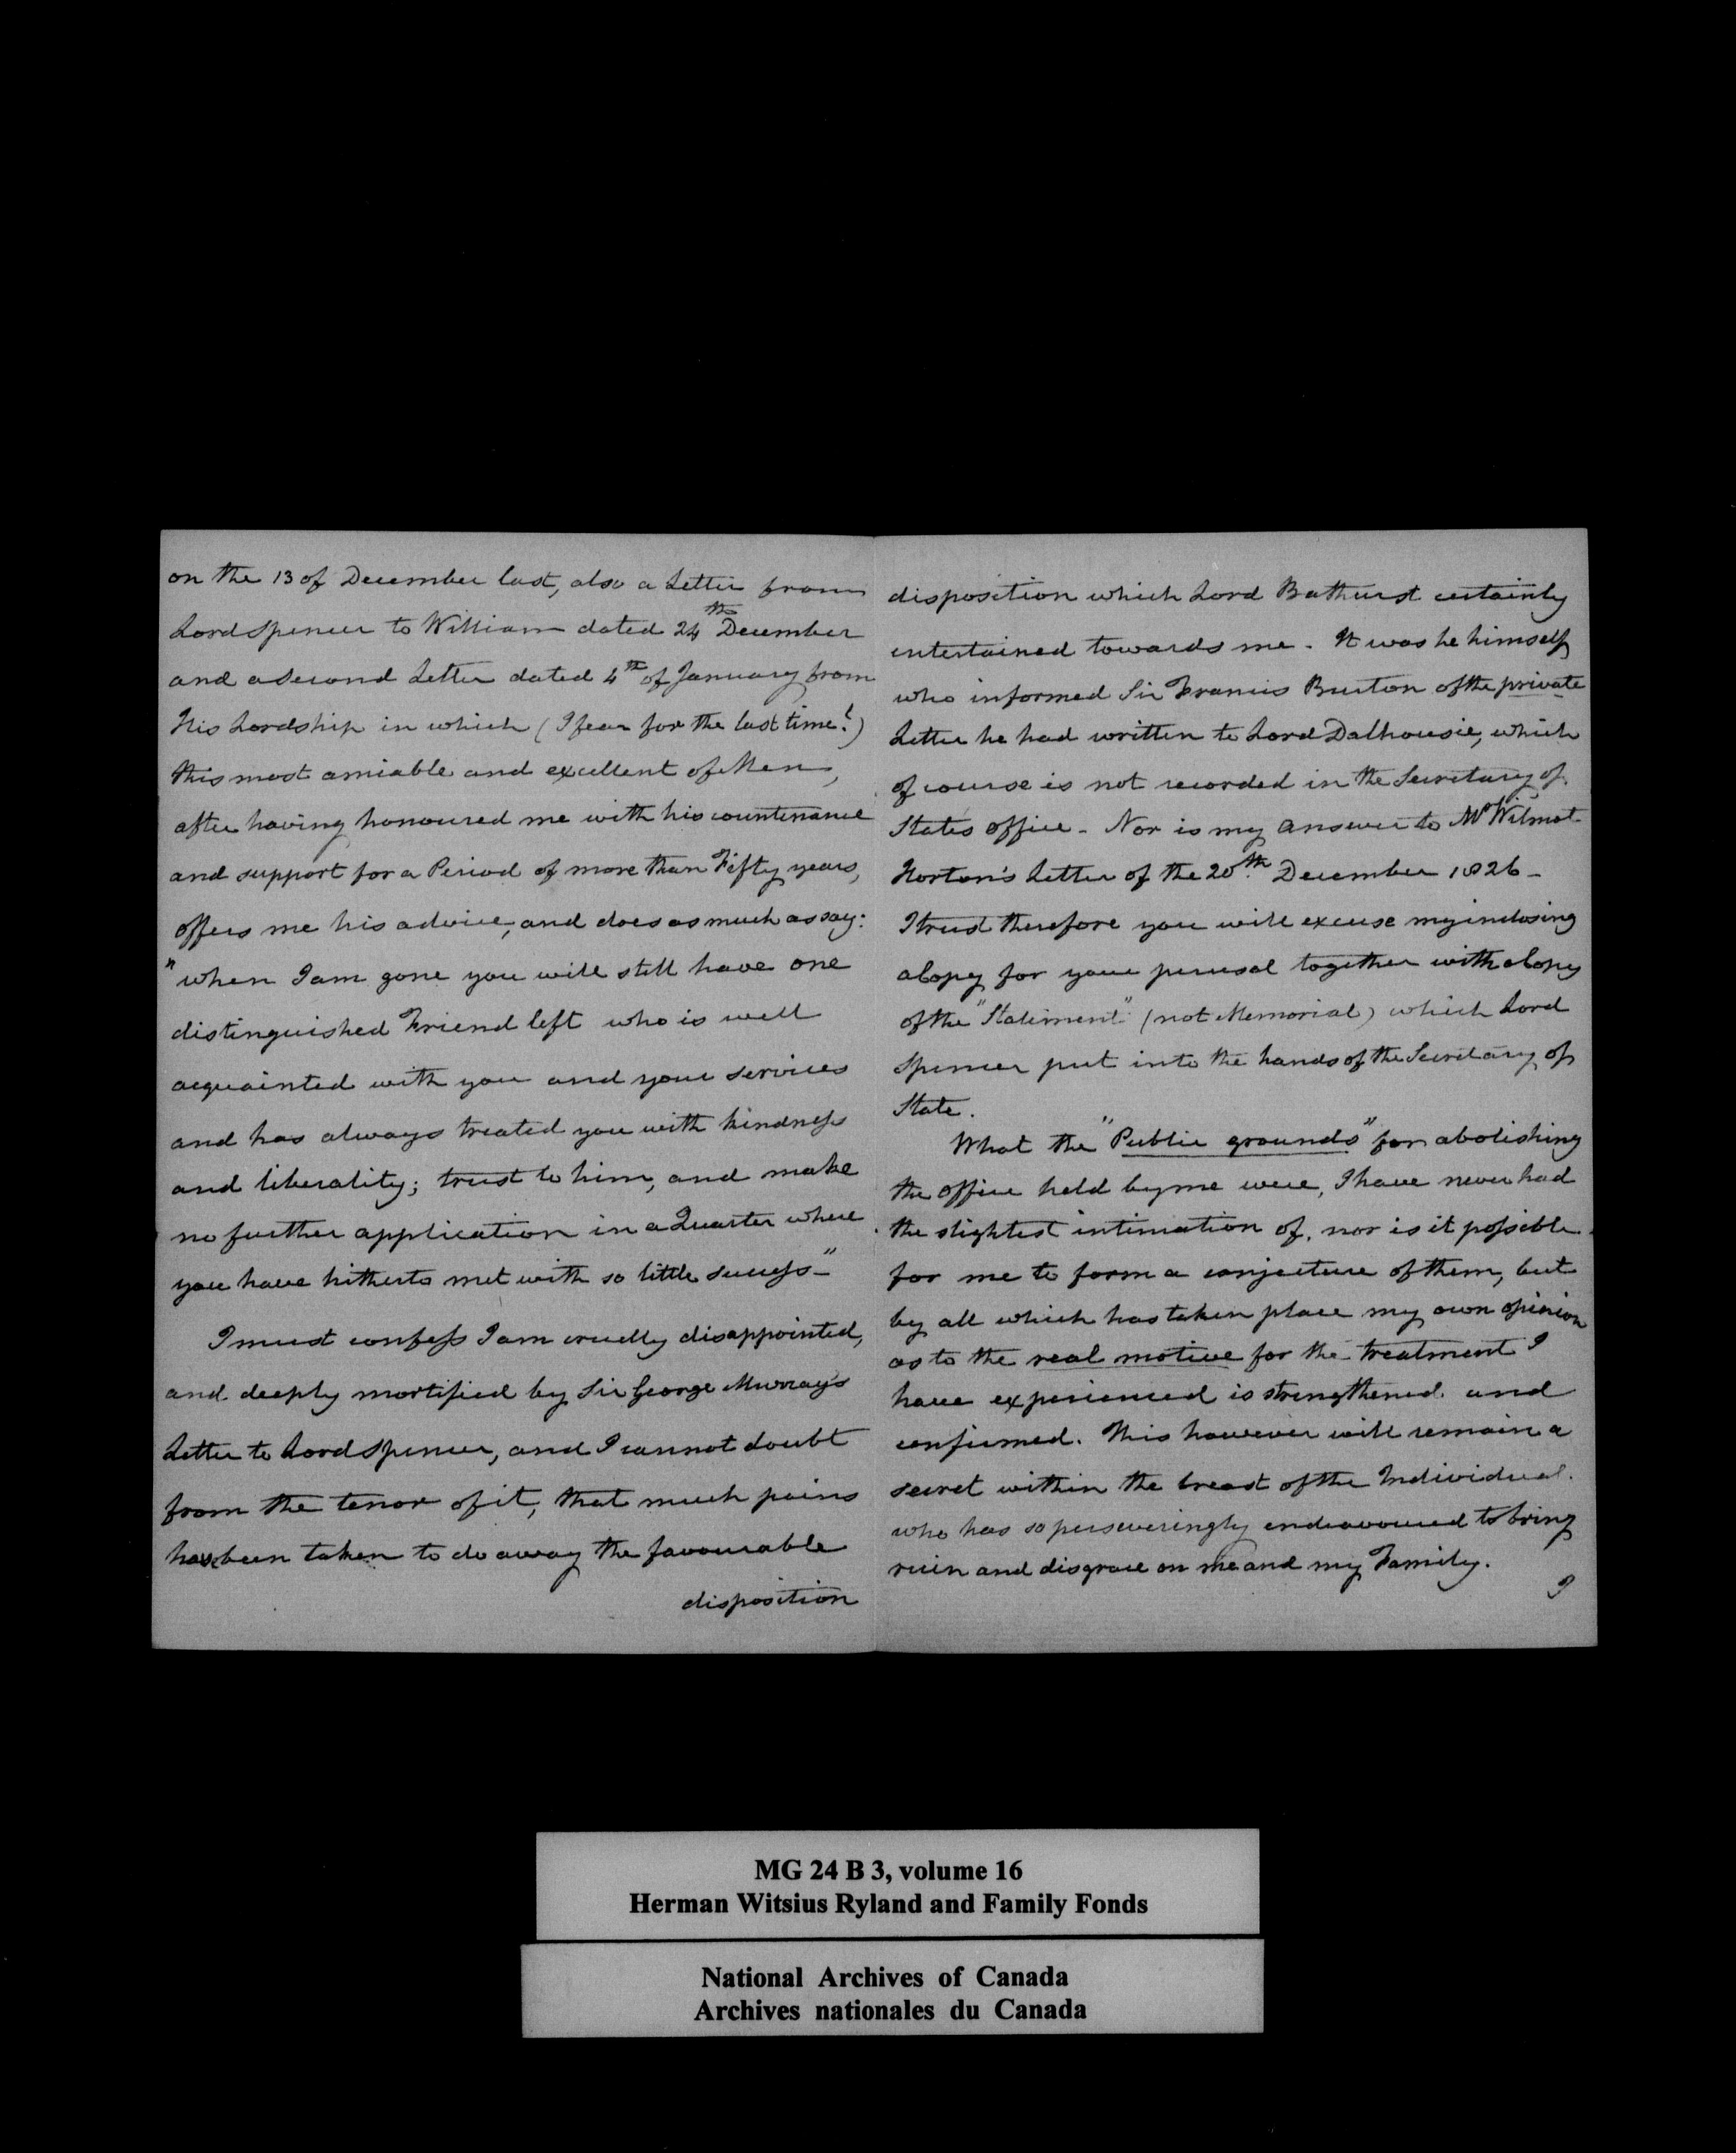 on the 13 of December last, also a Letter from
Lord Spencer to William dated 24th December
and a second Letter dated 4th of January from
His Lordship in which (I fear for the last time!)
this most amiable and excellent of Men,
after having honoured me with his countenance
and support for a Period of more than Fifty years,
offers me his advice, and does as much as say:
"when I am gone you will still have one
distinguished Friend left who is well
acquainted with you and your services
and has always treated you with kindness
and liberality; trust to him, and make
no further application in a Quarter where
you have hitherto met with so little success"-
I must confess I am cruelly disappointed,
and deeply mortified by Sir George Murray's
Letter to Lord Spencer, and I cannot doubt
from the tenor of it, that much pains
has been taken to do away the favourable
disposition
disposition which Lord Bathurst certainly
entertained towards me. It was he himself
who informed Sir Francis Burton of the private
Letter he had written to Lord Dalhousie, which
of course is not recorded in the Secretary of
States office - Nor is my answer to Mr Wilmot
Horton's Letter of the 20th December 1826 -
I trust therefore you will excuse my inclosing
a Copy for your perusal together with a Copy
of the "Statement" (not Memorial) which Lord
Spencer put into the hands of the Secretary of
State.
What the "Public grounds" for abolishing
the office held by me were, I have never had
the slightest intimation of, nor is it possible
for me to form a conjecture of them, but
by all which has taken place my own opinion
as to the real motive for the treatment I
have experienced is strengthened and
confirmed. This however will remain a
secret within the breast of the Individual
who has so perseveringly endeavoured to bring
ruin and disgrace on me and my Family.
I
MG 24 B 3, volume 16
Herman Witsius Ryland and Family Fonds
National Archives of Canada
Archives nationales du Canada